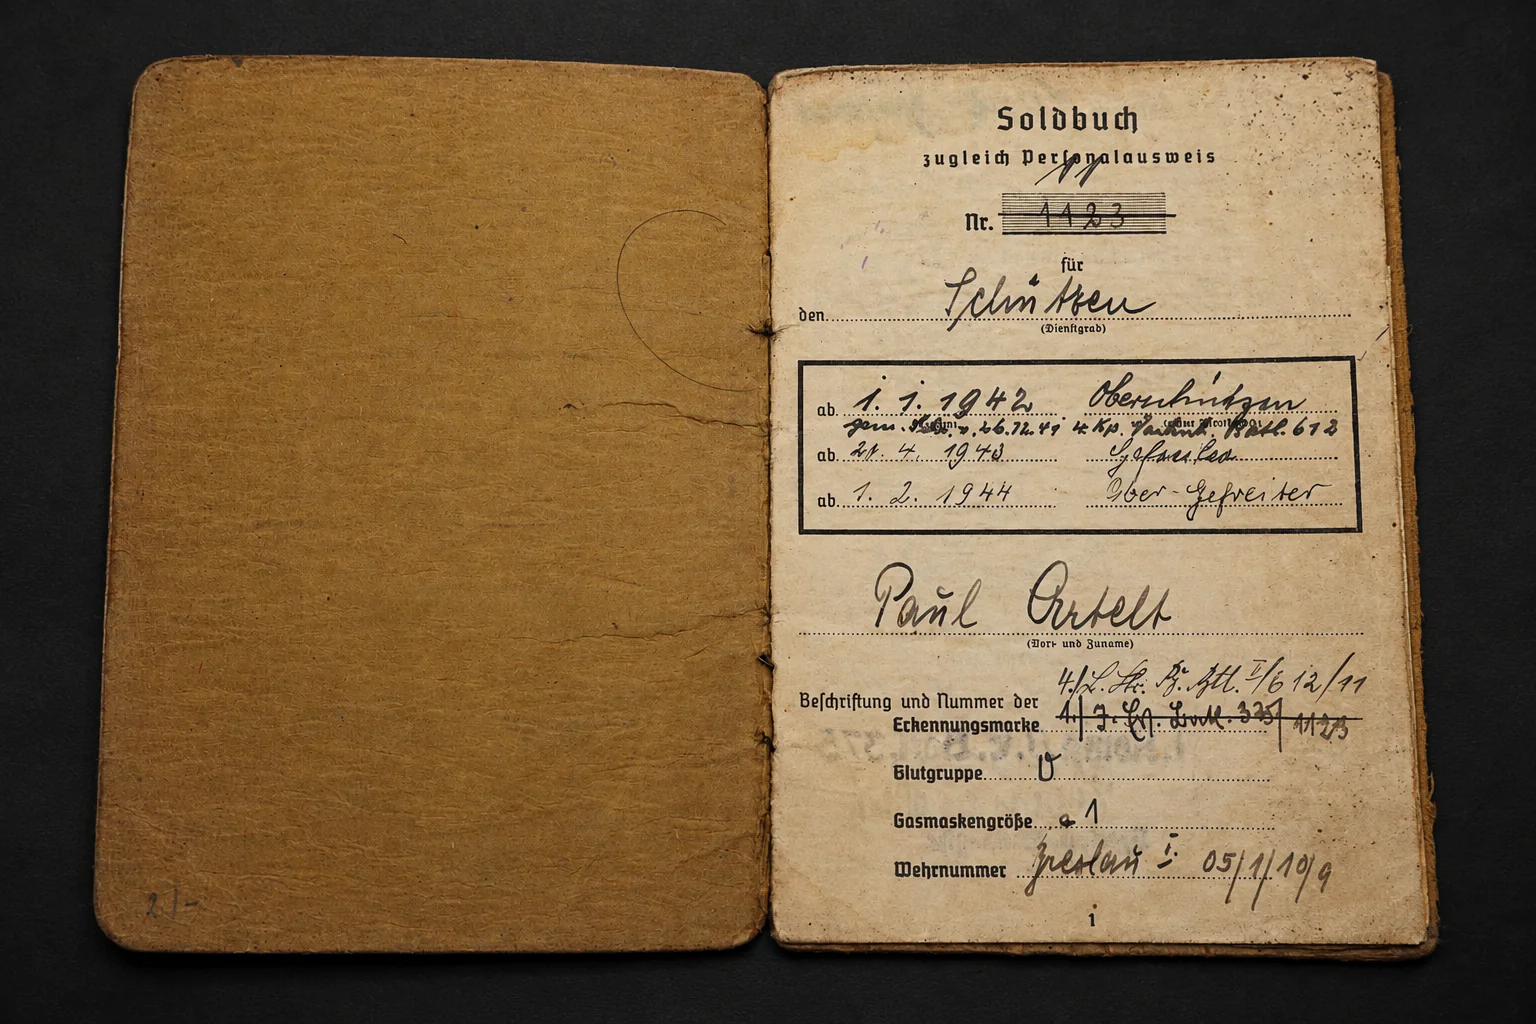 Soldbuch
zugleich Personalausweis
11
Nr. 1123
für
den Schützen
(Dienstgrad)
ab 1. 1. 1942 Oberschützen
gem. v. 26.12.41 4. Kp. Batl. 612
ab 21. 4. 1943 Gefreiter
ab 1. 2. 1944 Ober-Gefreiter
Paul Artelt
(Vor- und Zuname)
4./L. Btl. II/612/11
Beschriftung und Nummer der
Erkennungsmarke 1./J. 1123
Blutgruppe 0
Gasmaskengröße 1
Wehrnummer Breslau I. 05/1/10/9
1
2/-